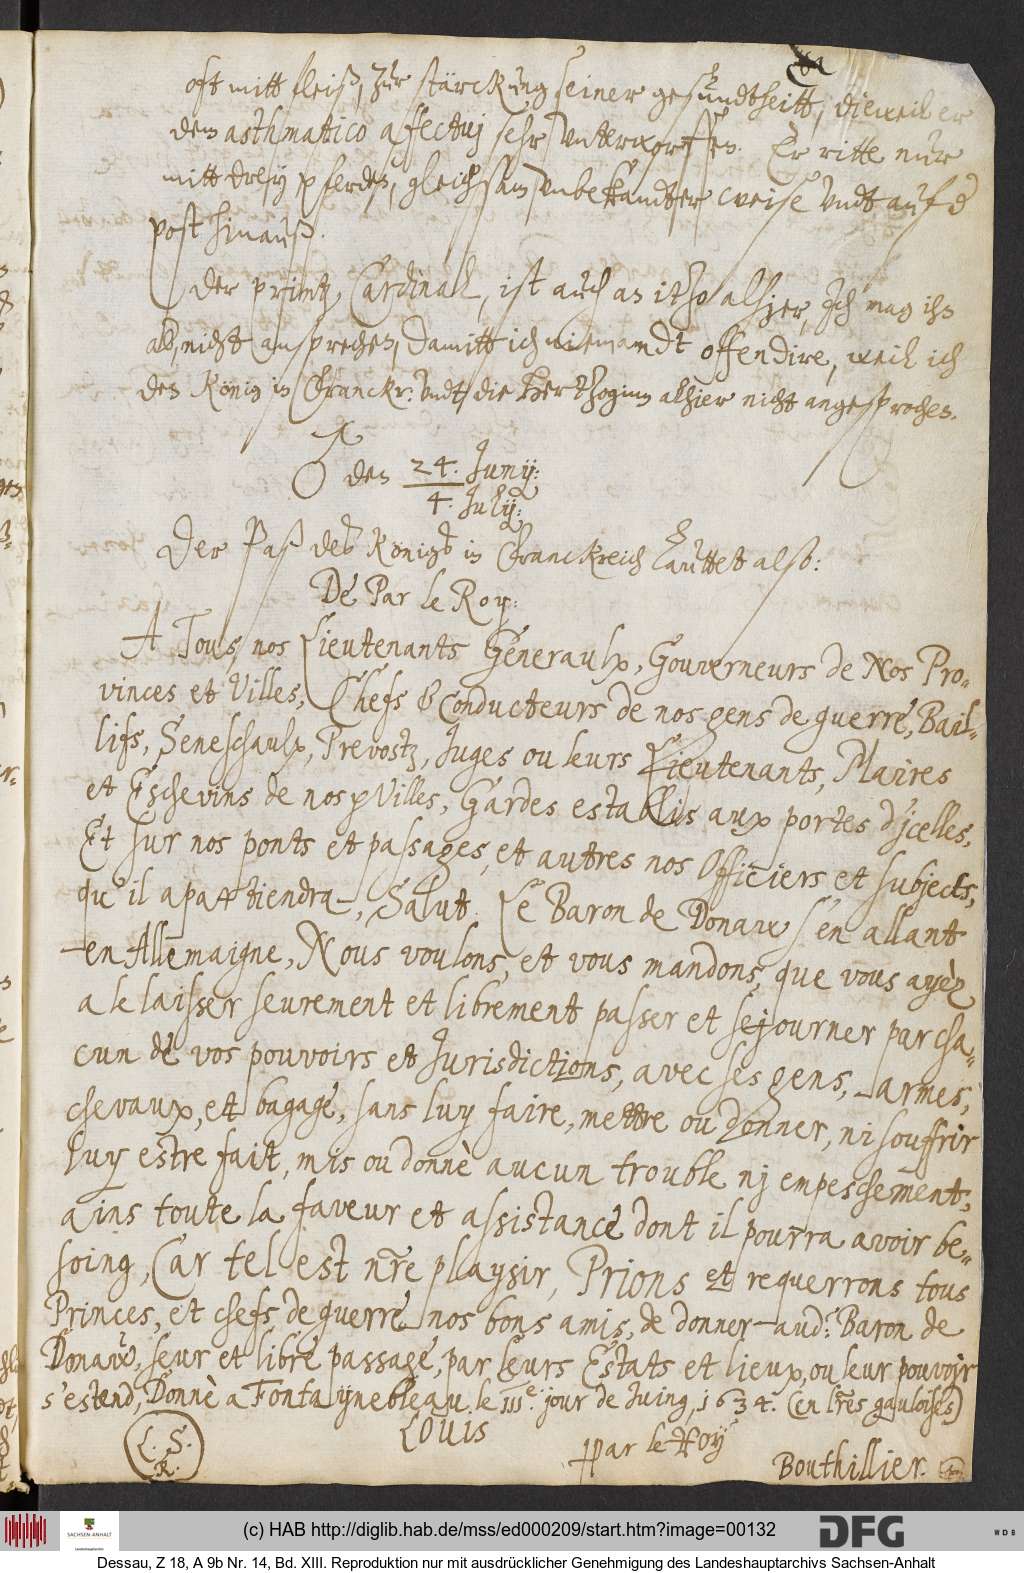 oft mitt fleiß, zur stärckung seiner gesundtheitt, dieweil er
dem asthmatico affectuj sehr vnterworffen. Er ritte nur
mitt dreÿ pferden, gleichsam vnbekandter weise vndt auf d
post hinauß.
Der printz Cardinal, ist auch an itzo alhier, Ich mag ihn
ab, nicht ansprechen, damitt ich niemandt offendire, weil ich
den König in Franckr: vndt die Hertzoginn alhier nicht angesprochen.
♂ den 24. Junij:
4. Julij:
Der Paß des Königs in Franckreich lauttet also:
De Par le Roy:
A Tous nos Lieutenants Generaulx, Gouverneurs de Nos Pro-
vinces et Villes, Chefs & Conducteurs de nos gens de guerre, Bail-
lifs, Seneschaulx, Prevostz, Juges ou leurs Lieutenants, Maires
et Eschevins de nos Villes, Gardes establis aux portes d'jcelles,
Et sur nos ponts et passages, et autres nos Officiers et subjects,
qu'il apartiendra, Salut. Le Baron de Donaw s'en allant
en Allemaigne, Nous voulons, et vous mandons, que vous ayèz
a le laisser seurement et librement passer et sejourner par cha-
cun de vos pouvoirs et Jurisdictions, avec ses gens, armes,
chevaux, et bagage, sans luy faire, mettre ou donner, ni souffrir
luy estre fait, mis ou donnè aucun trouble nj empeschement,
ains toute la faveur et assistance dont il pourra avoir be-
soing, Car tel est nr̄e playsir, Prions et requerrons tous
Princes, et chefs de guerre nos bons amis, de donner aud: Baron de
Donaw, seur et libre passage, par leurs Estats et lieux, ou leur pouvoir
s'estend, Donnè a Fontaÿnebleau le IIIe. jour de Juing, 1634. (en lr̄es gauloises)
Louis
L. S.
R.
Par le Roy
Bouthillier.
(c) HAB http://diglib.hab.de/mss/ed000209/start.htm?image=00132
SACHSEN-ANHALT
DFG
WDB
Dessau, Z 18, A 9b Nr. 14, Bd. XIII. Reproduktion nur mit ausdrücklicher Genehmigung des Landeshauptarchivs Sachsen-Anhalt